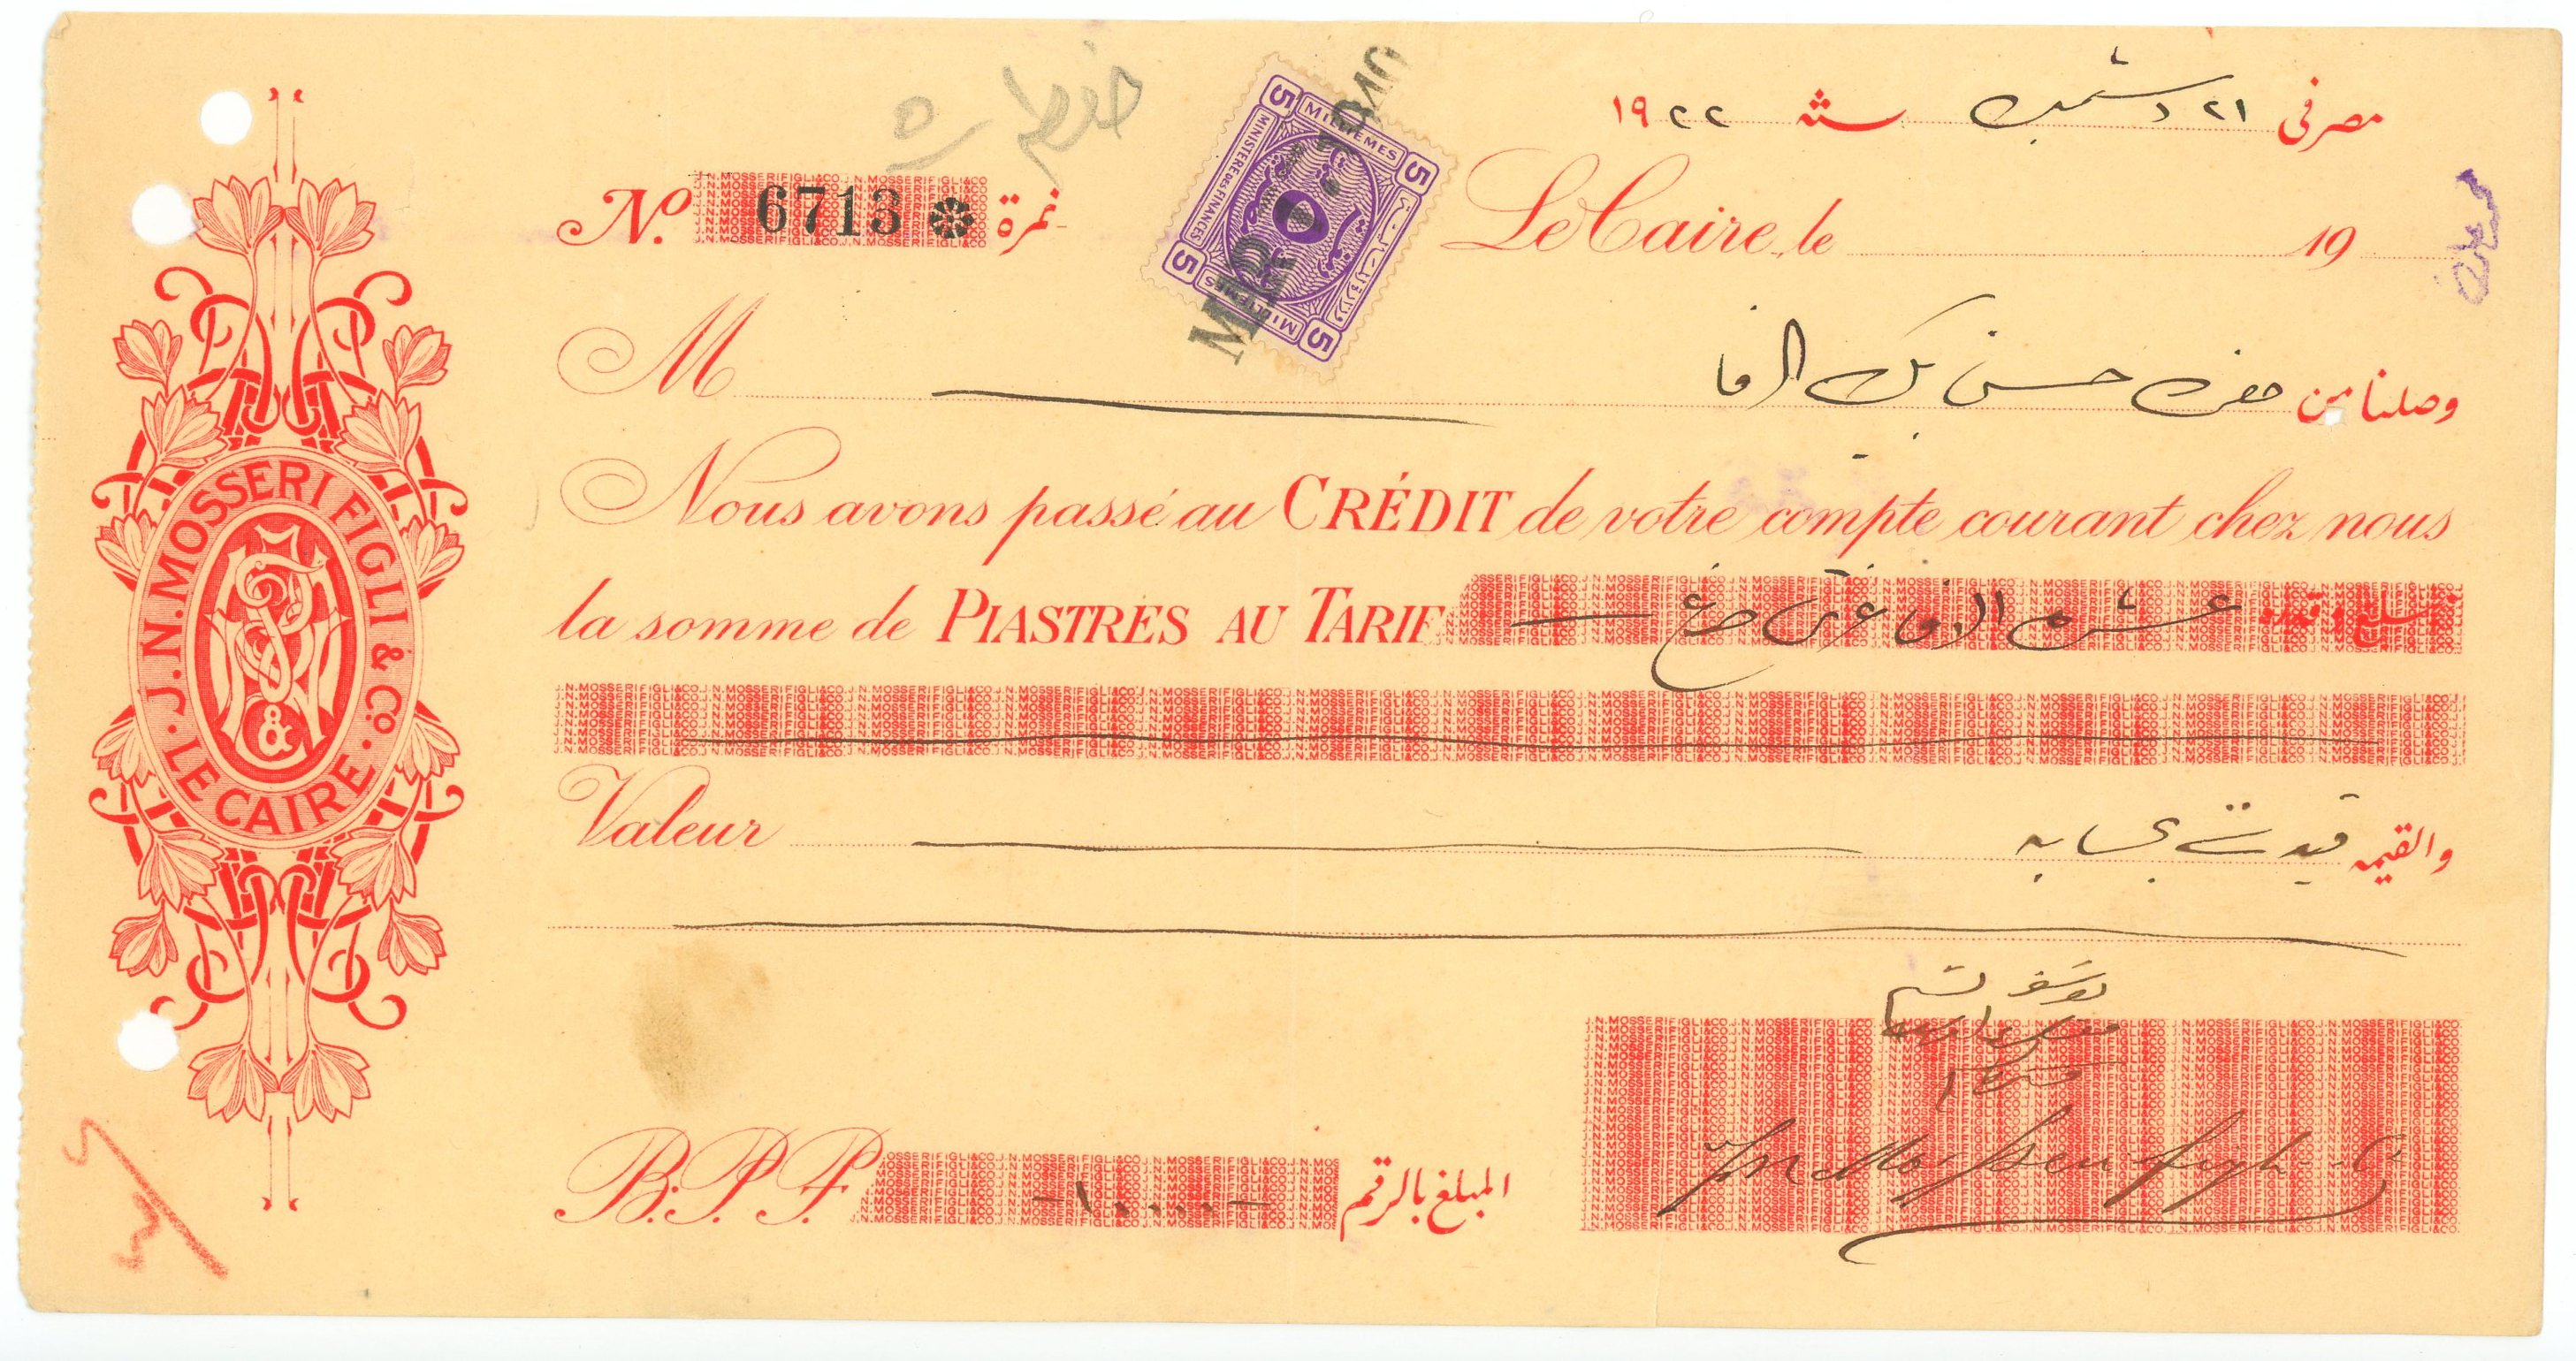 مصر فى ٢١ دسمبر سنة ١٩٢٢
Nº 6713 نمرة
Le Caire, le 19
5 MILLIEMES 5
MINISTERE DES FINANCES
٥
5 MILLIEMES 5
M وصلنا من حضرة حسن بك
Nous avons passé au CRÉDIT de votre compte courant chez nous
la somme de PIASTRES AU TARIF مبلغ وقدره عشرة الاف غرش صاغ
Valeur والقيمه قيدت بحسابه
B.P.F. -١٠٠٠٠- المبلغ بالرقم
J. N. Mosseri figli & Co
J.N. MOSSERI FIGLI & Cº. LE CAIRE.